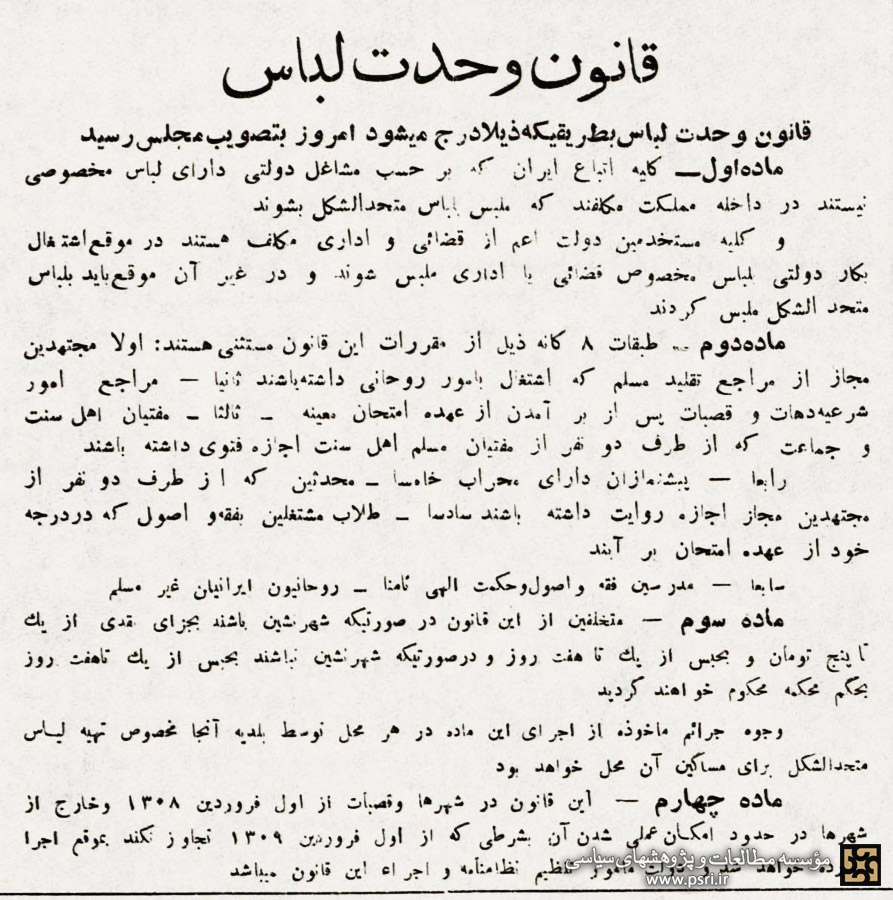 قانون وحدت لباس
قانون وحدت لباس بطریقیکه ذیلا درج میشود امروز بتصویب مجلس رسید
ماده اول — کلیه اتباع ایران که بر حسب مشاغل دولتی دارای لباس مخصوصی
نیستند در داخله مملکت مکلفند که ملبس بلباس متحدالشکل بشوند
و کلیه مستخدمین دولت اعم از قضائی و اداری مکلف هستند در موقع اشتغال
بکار دولتی بلباس مخصوص قضائی یا اداری ملبس شوند و در غیر آن موقع باید بلباس
متحد الشکل ملبس کردند
ماده دوم — طبقات ۸ کانه ذیل از مقررات این قانون مستثنی هستند: اولا مجتهدین
مجاز از مراجع تقلید مسلم که اشتغال بامور روحانی داشته باشند ثانیا — مراجع امور
شرعیه دهات و قصبات پس از بر آمدن از عهده امتحان معینه – ثالثا – مفتیان اهل سنت
و جماعت که از طرف دو نفر از مفتیان مسلم اهل سنت اجازه فتوی داشته باشند
رابعا — پیشنمازان دارای محراب خامسا – محدثین که از طرف دو نفر از
مجتهدین مجاز اجازه روایت داشته باشند سادسا – طلاب مشتغلین بفقه و اصول که در درجه
خود از عهده امتحان بر آیند
سابعا — مدرسین فقه و اصول و حکمت الهی ثامنا – روحانیون ایرانیان غیر مسلم
ماده سوم — متخلفین از این قانون در صورتیکه شهرنشین باشند بجزای نقدی از یك
تا پنج تومان و بحبس از یك تا هفت روز و در صورتیکه شهرنشین نباشند بحبس از یك تا هفت روز
بحکم محکمه محکوم خواهند گردید
وجوه جرائم ماخوذه از اجرای این ماده در هر محل توسط بلدیه آنجا مخصوص تهیه لباس
متحدالشکل برای مساکین آن محل خواهد بود
ماده چهارم — این قانون در شهرها و قصبات از اول فروردین ۱۳۰۸ و خارج از
شهرها در حدود امکان عملی شدن آن بشرطی که از اول فروردین ۱۳۰۹ تجاوز نکند بموقع اجرا
خواهد شد و دولت مامور تنظیم نظامنامه و اجراء این قانون میباشد
مؤسسه مطالعات و پژوهشهای سیاسی
www.psri.ir